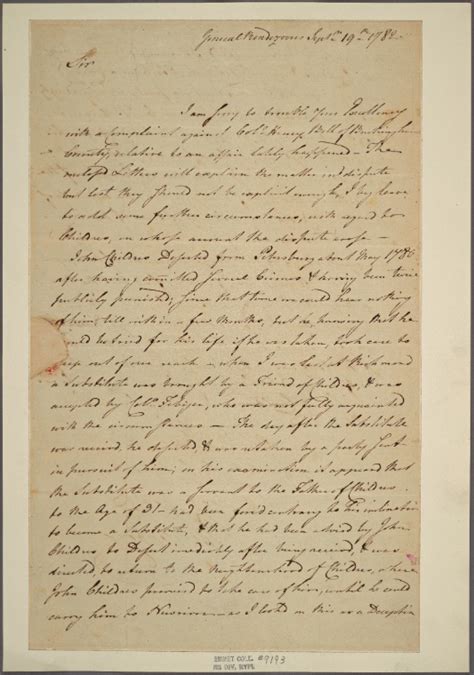 General Rendezvous Septr. 19th 1782
Sir
I am sorry to trouble your Excellency
with a complaint against Colo. Henry Bell of Buckingham
County, relative to an affair lately happened — The
inclosed Letters will explain the matter in dispute
but lest they should not be explicit enough, I beg leave
to add some further circumstances, with regard to
Childres, on whose account the dispute arose —
John Childres Deserted from Petersburg about May 1780
after having committed several Crimes & having been twice
publicly punished, since that time we could hear nothing
of him, till within a few Months, but he knowing that he
would be tried for his life, if he was taken, took care to
keep out of our reach — when I was last at Richmond
a Substitute was brought by a Friend of Childres, & was
accepted by Colo. Febiger, who was not fully acquainted
with the circumstances — The day after the Substitute
was received, he deserted, & was retaken by a party sent
in pursuit of him; on his examination it appeared that
the Substitute was a Servant to the Father of Childres
to the Age of 31 — had been forced contrary to his inclination
to become a Substitute, & that he had been advised by John
Childres to Desert immediately after being received, & was
directed, to return to the Neighbourhood of Childres, where
John Childres promised to take care of him, until he could
carry him to — as I looked on this as a Deception
EMMET COLL. #9193
MSS DIV. NYPL